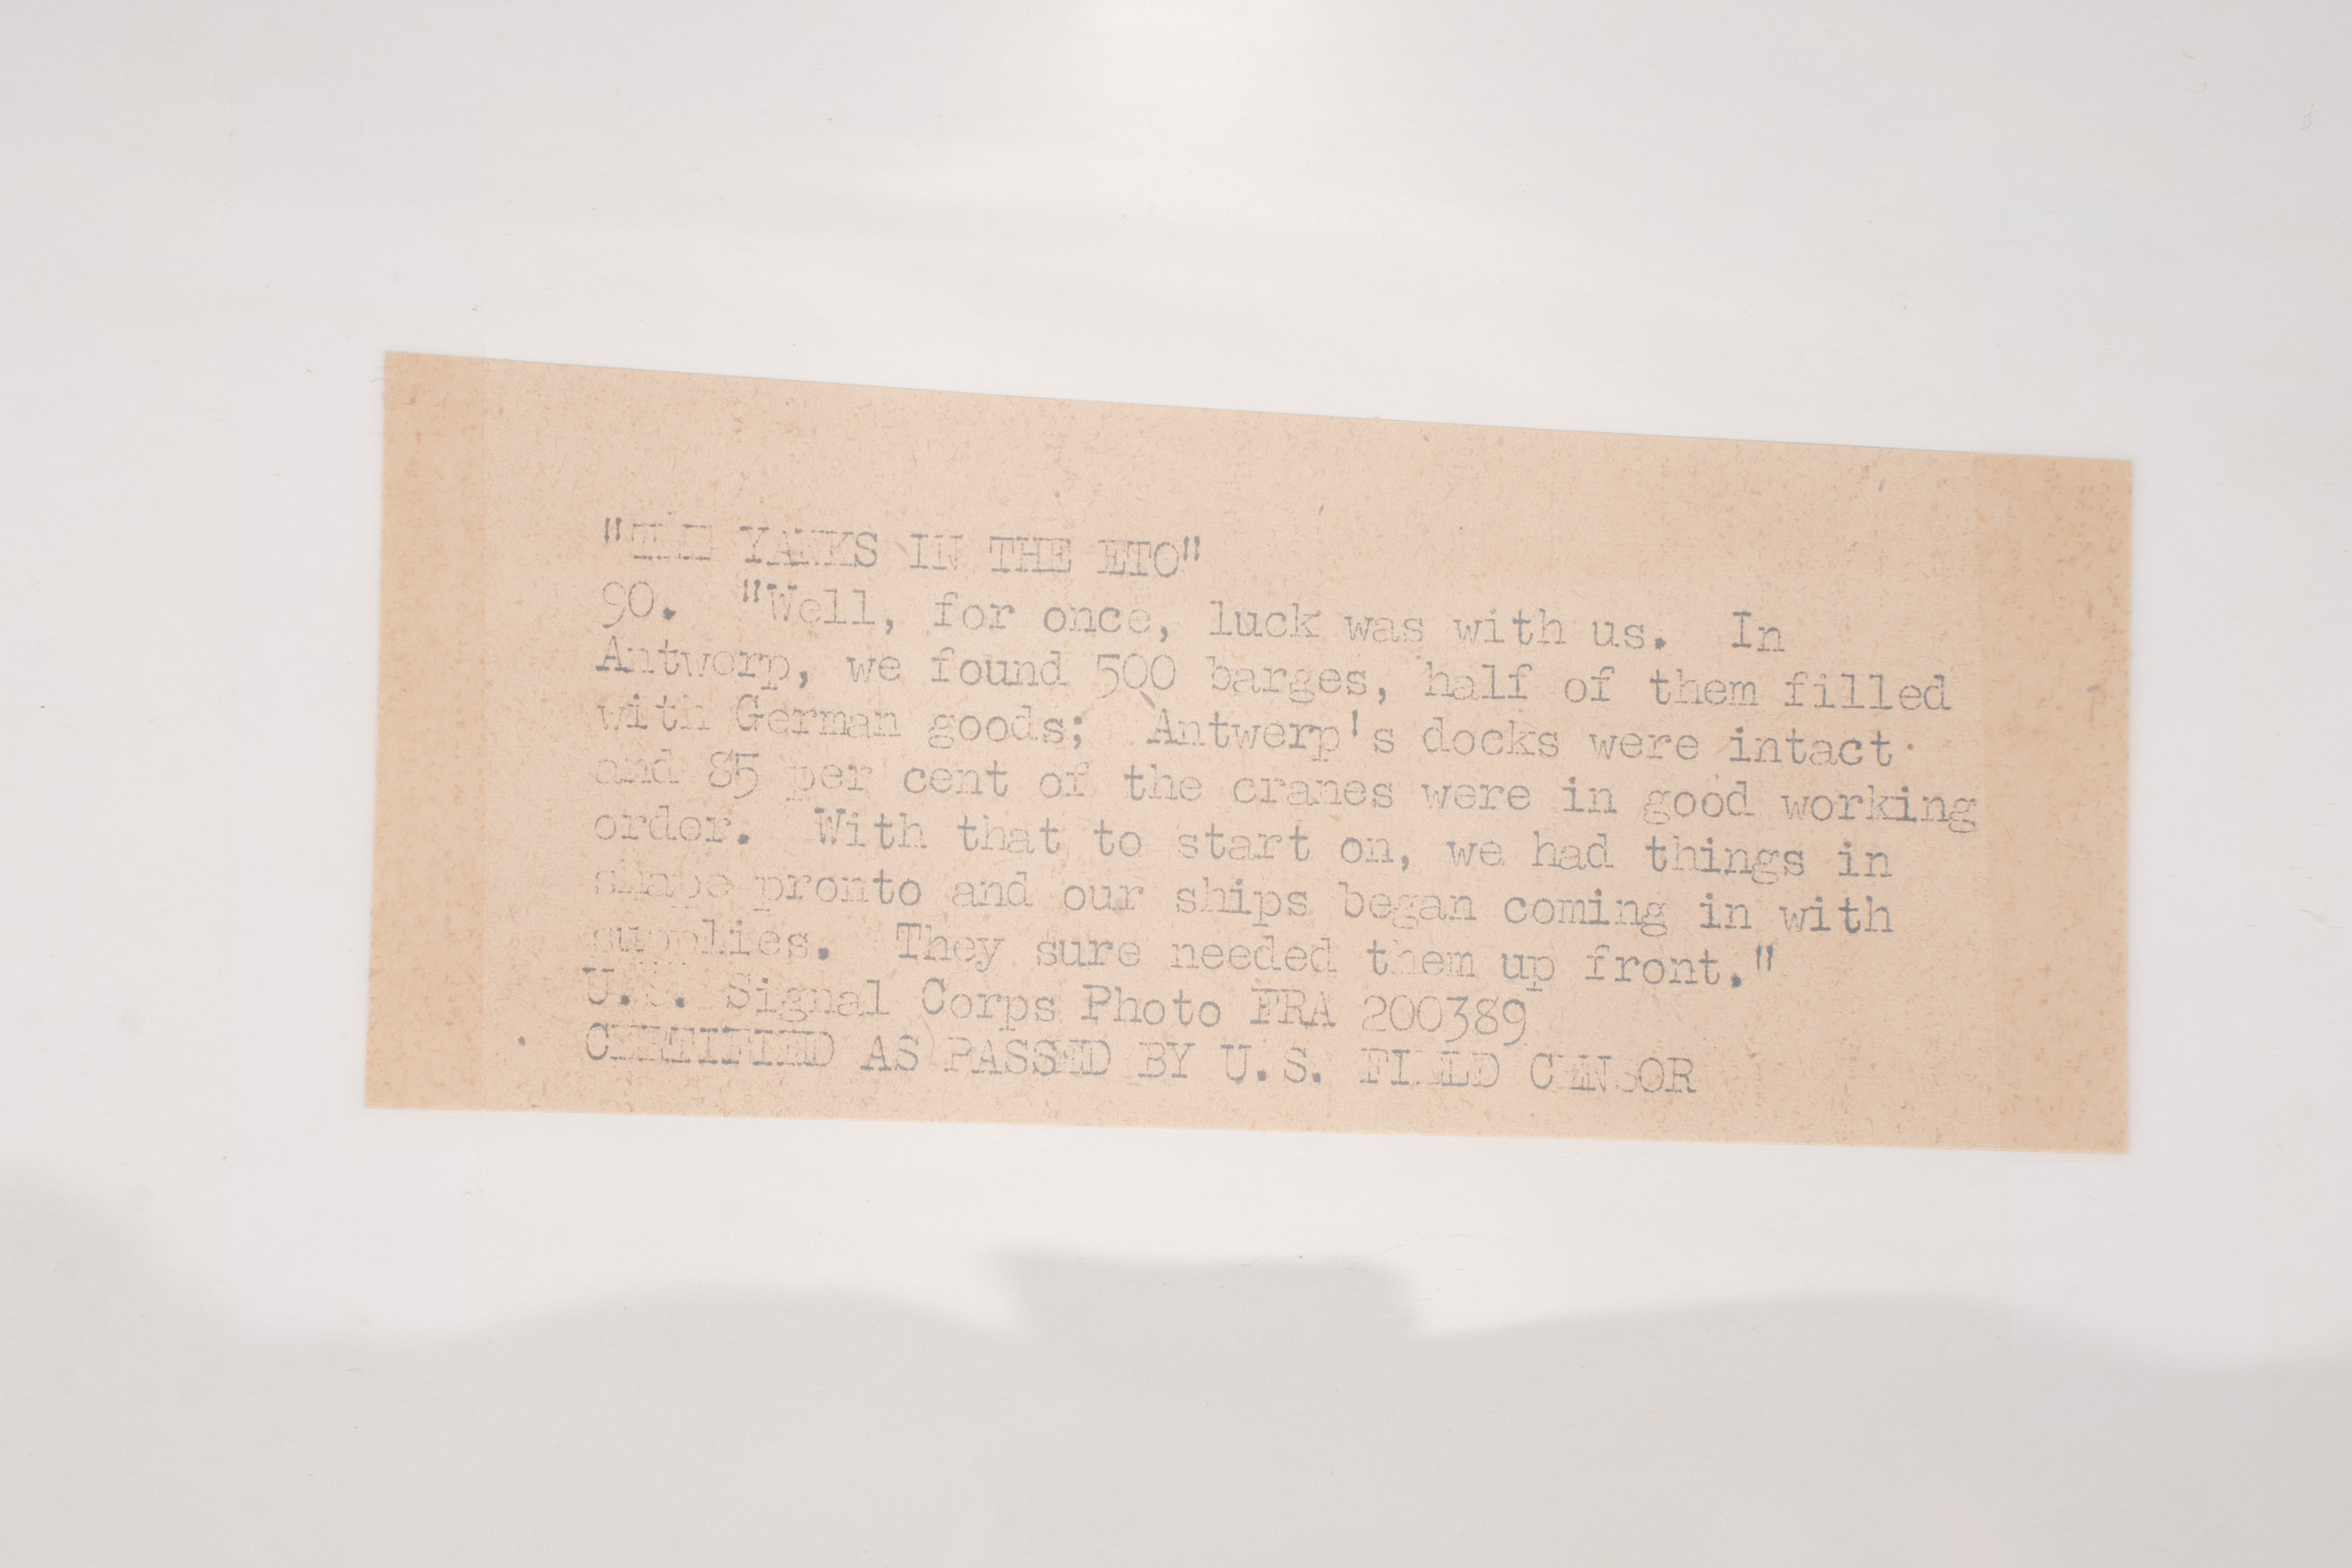 "THE YANKS IN THE ETO"
90. "Well, for once, luck was with us. In
Antwerp, we found 500 barges, half of them filled
with German goods; Antwerp's docks were intact
and 85 per cent of the cranes were in good working
order. With that to start on, we had things in
shape pronto and our ships began coming in with
supplies. They sure needed them up front."
U.S. Signal Corps Photo FRA 200389
CERTIFIED AS PASSED BY U.S. FIELD CENSOR